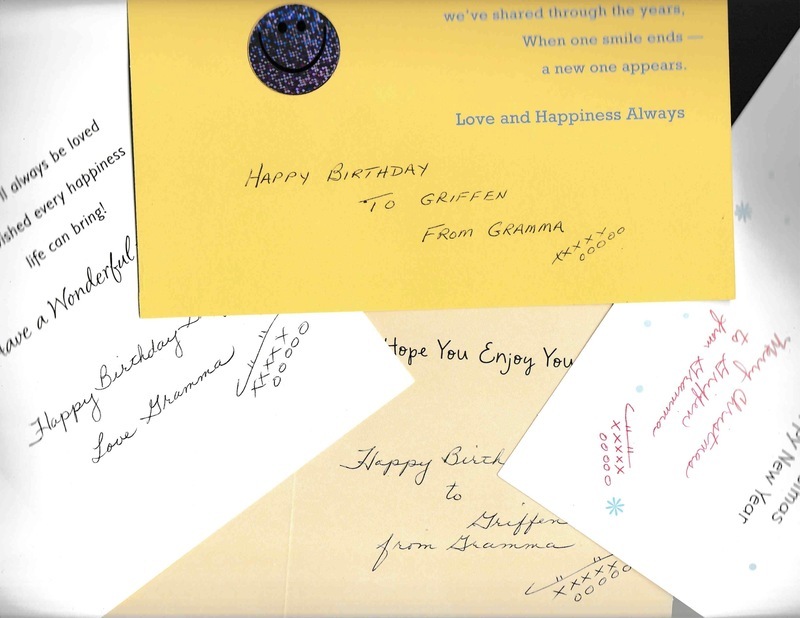 we've shared through the years,
When one smile ends —
a new one appears.
Love and Happiness Always
HAPPY BIRTHDAY
TO GRIFFEN
FROM GRAMMA
xxxxx
ooooo
always be loved
wished every happiness
life can bring!
Have a Wonderful
Happy Birthday
Love Gramma
xxxxx
ooooo
Hope You Enjoy You
Happy Birth
to
Griffen
from Gramma
xxxxx
ooooo
Merry Christmas
to Griffen
from Gramma
xxxxx
ooooo
New Year